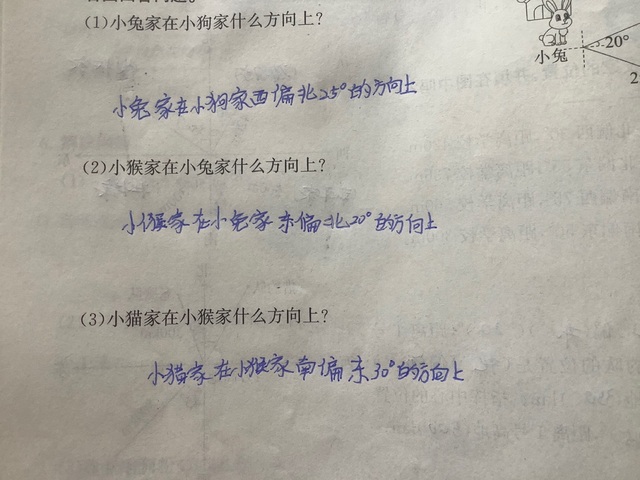 (1)小兔家在小狗家什么方向上?
小兔
20°
2
小兔家在小狗家西偏北25°的方向上
(2)小猴家在小兔家什么方向上?
小猴家在小兔家东偏北20°的方向上
(3)小猫家在小猴家什么方向上?
小猫家在小猴家南偏东30°的方向上